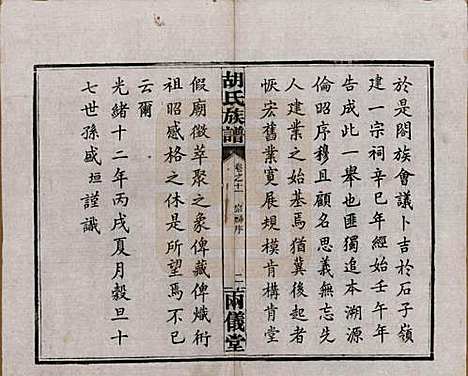 於是閤族會議卜吉於石子嶺
建一宗祠辛巳年經始壬午年
告成此一舉也匪獨追本溯源
倫昭序穆且顧名思義無忘先
人建業之始基焉猶冀後起者
恢宏舊業寬展規模肯構肯堂
胡氏族譜
卷之十一
宗祠序
二
兩儀堂
假廟徵萃聚之象俾藏俾熾衎
祖昭感格之休是所望焉不已
云爾
光緒十二年丙戌夏月穀旦十
七世孫盛垣謹識